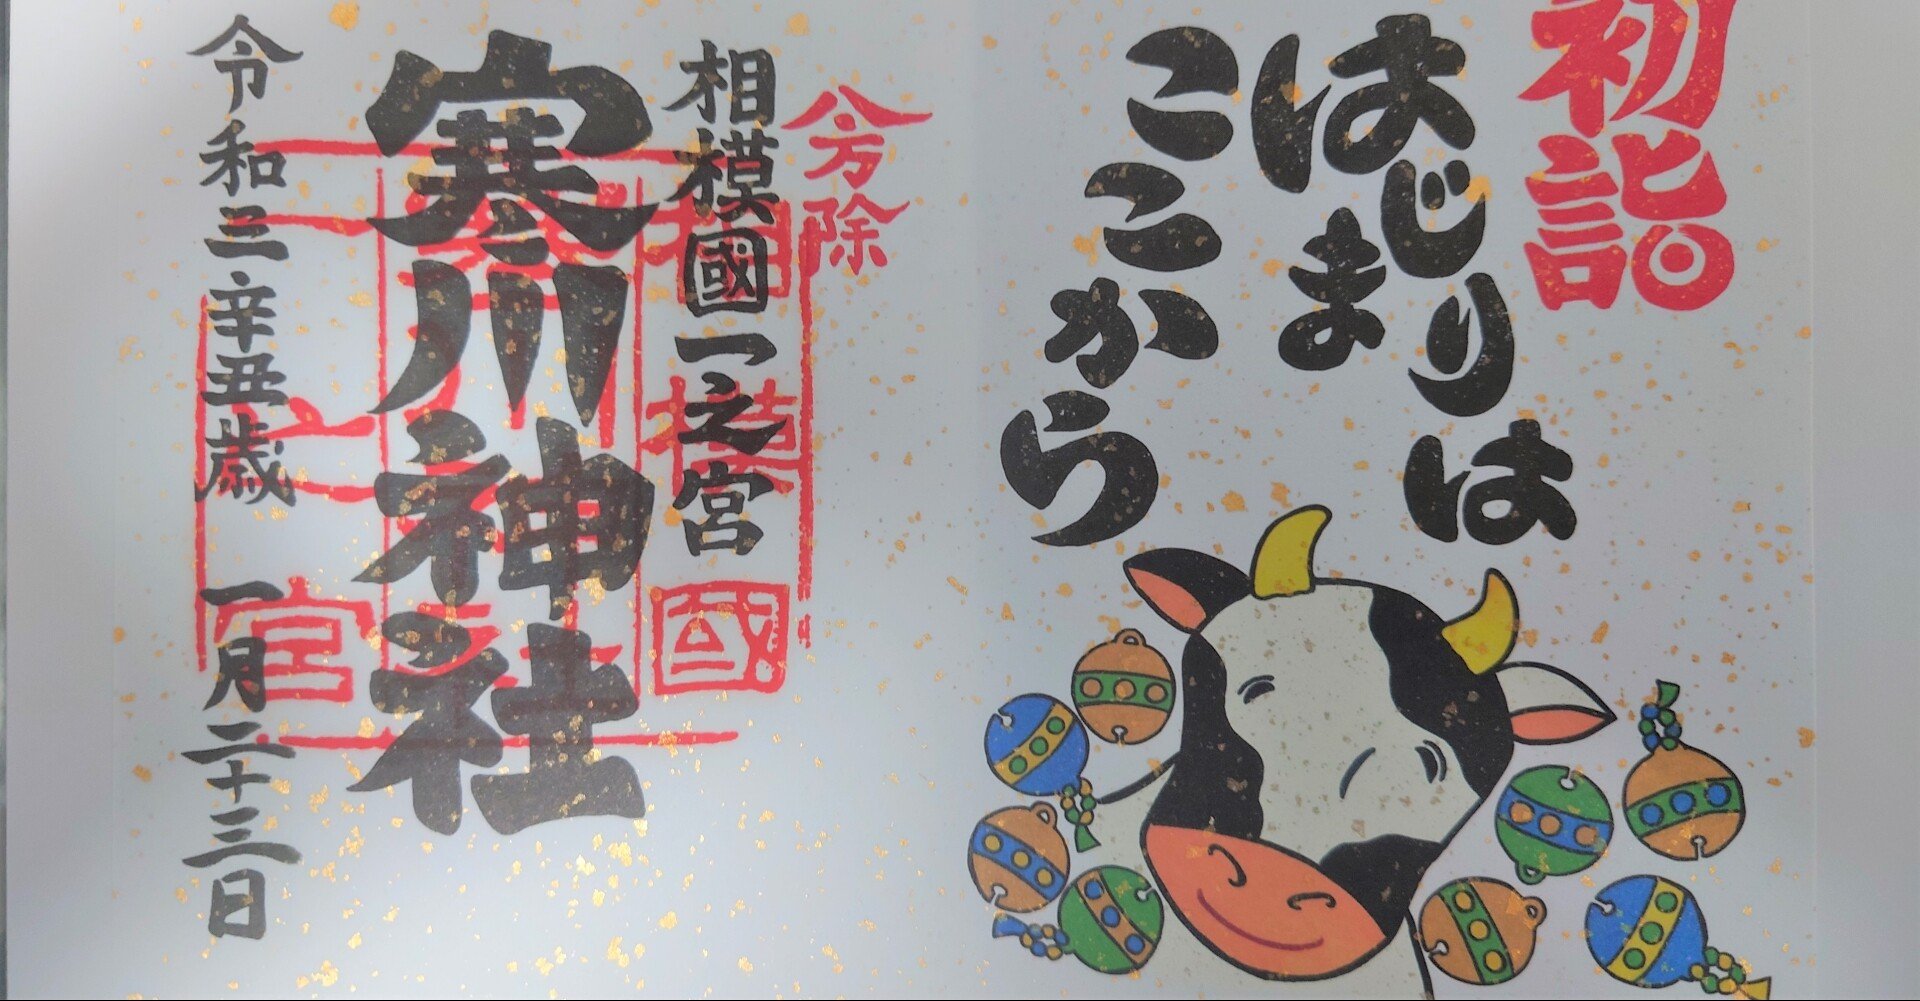 初詣
はじまりは
はじまり
ここから
八方除
相模國一之宮
寒川神社
相模國
寒川神社
一之宮
令和三辛丑歳 一月二十三日